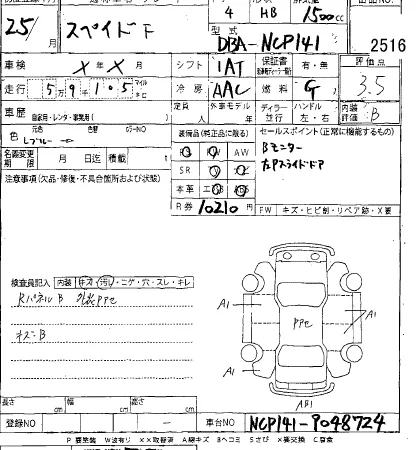 4 HB 1500cc
25/月 スペイド F
型式 DBA-NCP141
2516
車検 X年X月 シフト IAT 保証書 有・無 評価点
走行 5万9千105 マイル 冷房 AAC 燃料 G 3.5
車歴 自家用・レンタ・事業用 定員 人 外車モデル ディーラー 並行 ハンドル 左・右 内装評価 B
色 元色 色替 カラーNO 装備品(純正品に限る) セールスポイント(正常に機能するもの)
AW Bモニター
名義変更期限 月 日迄 積載 t SR 左Pスライドドア
注意事項(欠品・修復・不具合箇所および状態) 本革 エアB ABS
R券 10210円 FW キズ・ヒビ割・リペア跡・X要
検査員記入 内装 キズ・汚レ・コゲ・穴・スレ・キレ
RパネルB
キズB
A1
A1
A1
AB1
長さ cm 幅 cm 高さ cm
登録NO - 車台NO NCP141-9048724
P 要塗装 W波有リ XX取替済 A線キズ Bヘコミ Sさび X要交換 C腐食